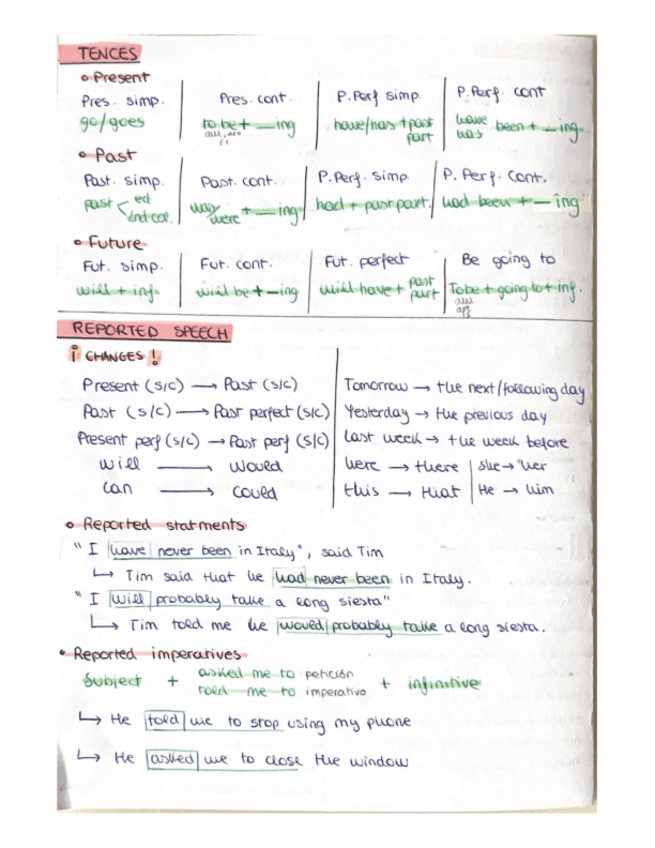 TENCES
• Present
Pres. simp. Pres. cont. P.Perf simp. P.Perf. cont
go/goes to be + __ing have/has + past part have has been + __ing
am, are is
• Past
Past. simp. Past. cont. P.Perf. simp P. Perf. cont.
past < ed 2nd col. was were + __ing had + past part. had been + __ing
• Future
Fut. simp. Fut. cont. Fut. perfect Be going to
will + inf. will be + __ing will have + past part To be + going to + inf.
am are is
REPORTED SPEECH
¡ CHANGES !
Present (s/c) → Past (s/c) Tomorrow → the next/following day
Past (s/c) → Past perfect (s/c) Yesterday → the previous day
Present perf (s/c) → Past perf (s/c) Last week → the week before
will → would here → there | she → her
can → could this → that | He → him
• Reported statments
" I have never been in Italy", said Tim
↳ Tim said that he had never been in Italy.
" I will probably take a long siesta"
↳ Tim told me he would probably take a long siesta.
• Reported imperatives
Subject + asked me to petición + infinitive
told me to imperativo
↳ He told me to stop using my phone
↳ He asked me to close the window